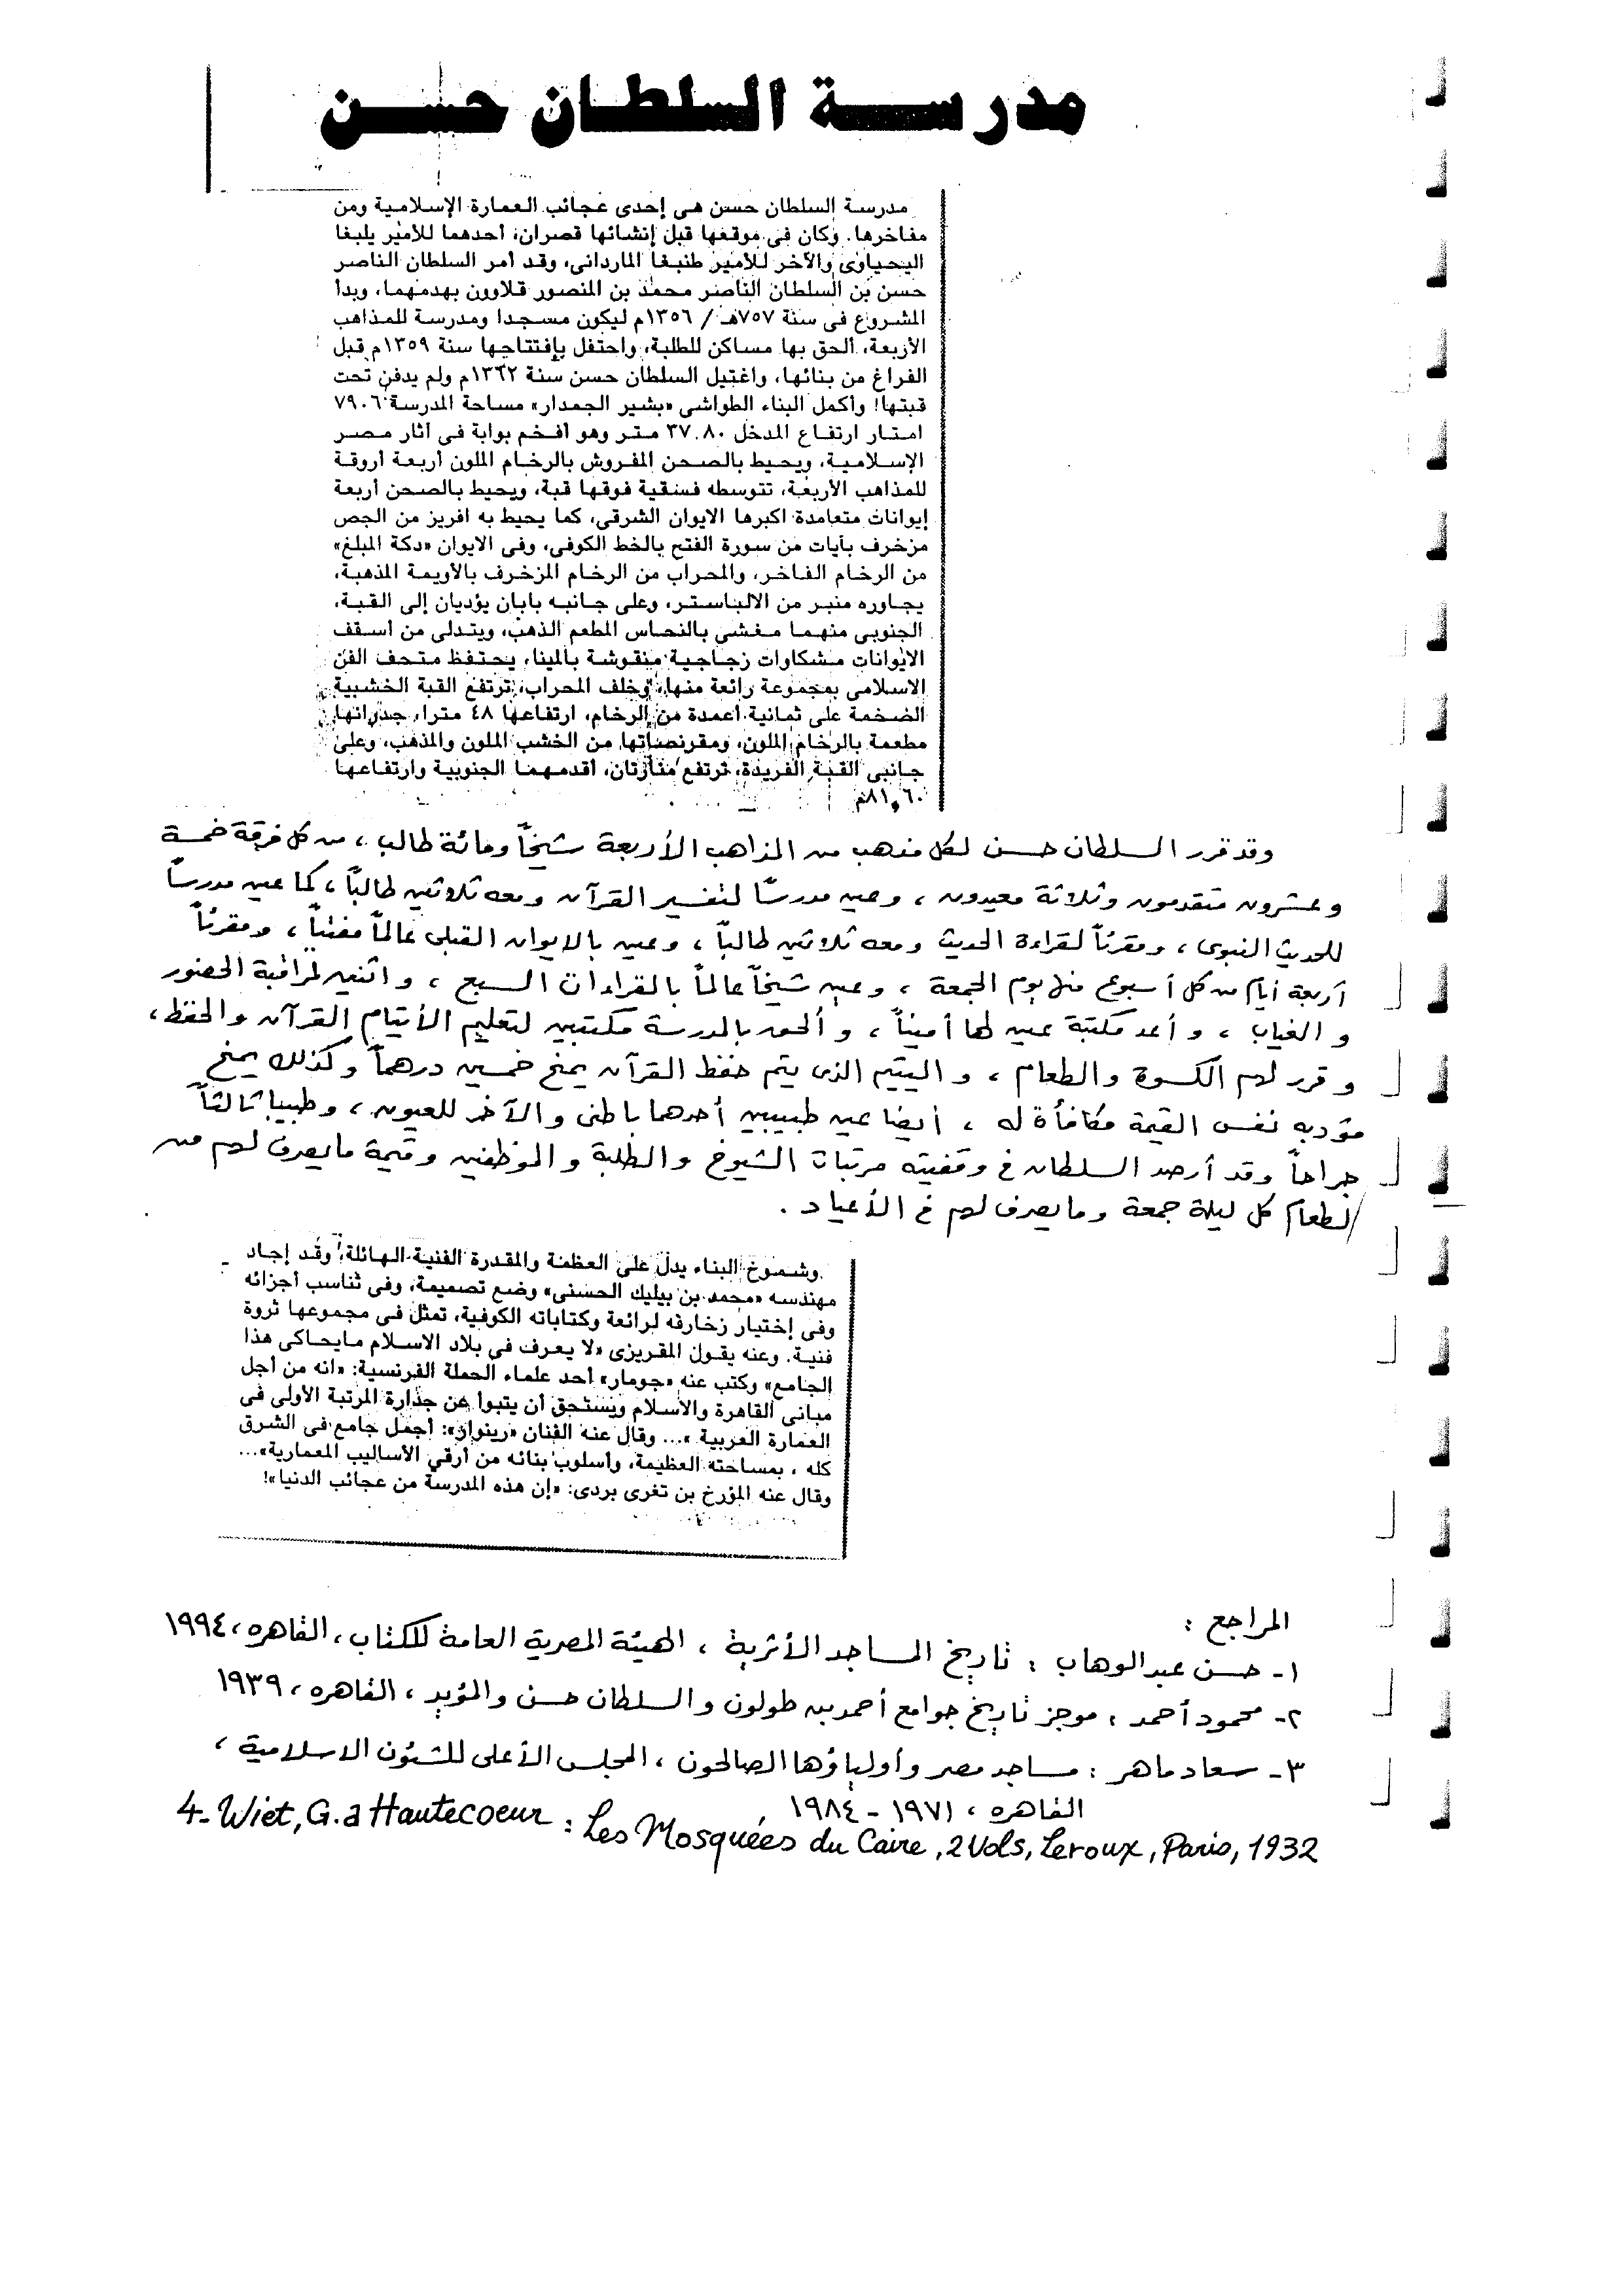 مدرسة السلطان حسن
مدرسة السلطان حسن هى إحدى عجائب العمارة الإسلامية ومن
مفاخرها. وكان فى موقعها قبل إنشائها قصران، أحدهما للأمير يلبغا
اليحياوى والآخر للأمير طنبغا الماردانى، وقد أمر السلطان الناصر
حسن بن السلطان الناصر محمد بن المنصور قلاوون بهدمهما، وبدأ
المشروع فى سنة ٧٥٧هـ / ١٣٥٦م ليكون مسجدا ومدرسة للمذاهب
الأربعة، ألحق بها مساكن للطلبة، واحتفل بإفتتاحها سنة ١٣٥٩م قبل
الفراغ من بنائها، واغتيل السلطان حسن سنة ١٣٦٢م ولم يدفن تحت
قبتها! وأكمل البناء الطواشى «بشير الجمدار» مساحة المدرسة ٧٩٠٦
امتار ارتفاع المدخل ٣٧.٨٠ متر وهو أفخم بوابة فى آثار مصر
الإسلامية، ويحيط بالصحن المفروش بالرخام الملون أربعة أروقة
للمذاهب الأربعة، تتوسطه فسقية فوقها قبة، ويحيط بالصحن أربعة
إيوانات متعامدة اكبرها الايوان الشرقى، كما يحيط به افريز من الجص
مزخرف بآيات من سورة الفتح بالخط الكوفى، وفى الايوان «دكة المبلغ»
من الرخام الفاخر، والمحراب من الرخام المزخرف بالأويمة المذهبة،
يجاوره منبر من الالباستر، وعلى جانبه بابان يؤديان إلى القبة،
الجنوبى منهما مغشى بالنحاس المطعم الذهب، ويتدلى من أسقف
الايوانات مشكاوات زجاجية منقوشة بالمينا، يحتفظ متحف الفن
الاسلامى بمجموعة رائعة منها، وخلف المحراب، ترتفع القبة الخشبية
الضخمة على ثمانية أعمدة من الرخام، ارتفاعها ٤٨ مترا، جدرانها
مطعمة بالرخام الملون، ومقرنصاتها من الخشب الملون والمذهب، وعلى
جانبى القبة الفريدة، ترتفع منارتان، أقدمهما الجنوبية وارتفاعها
٨١,٦٠م
وقد قرر السلطان حسن لكل مذهب من المذاهب الأربعة شيخاً ومائة طالب، من كل فرقة خمسة
وعشرون متقدمون وثلاثة معيدون، وعين مدرساً لتفسير القرآن ومعه ثلاثين طالباً، كما عين مدرساً
للحديث النبوى، ومقرئاً لقراءة الحديث ومعه ثلاثين طالباً، وعين بالايوان القبلى عالماً مفتياً، ومقرئاً
أربعة أيام من كل أسبوع منها يوم الجمعة، وعين شيخاً عالماً بالقراءات السبع، واثنين لمراقبة الحضور
والغياب، وأعد مكتبة عين لها أميناً، وألحق بالمدرسة مكتبين لتعليم الأيتام القرآن والخط،
وقرر لهم الكسوة والطعام، واليتيم الذى يتم حفظ القرآن يمنح خمسين درهماً وكذلك يمنح
مؤدبه نفس القيمة مكافأة له، أيضا عين طبيبين أحدهما باطنى والآخر للعيون، وطبيبا ثالثاً
جراحاً وقد أرصد السلطان فى وقفيته مرتبات الشيوخ والطلبة والموظفين وقيمة ما يصرف لهم من
الطعام كل ليلة جمعة وما يصرف لهم فى الأعياد.
وشموخ البناء يدل على العظمة والمقدرة الفنية الهائلة، وقد إجاد
مهندسه «محمد بن بيليك الحسنى» وضع تصميمة، وفى تناسب أجزائه
وفى إختيار زخارفه لرائعة وكتاباته الكوفية، تمثل فى مجموعها ثروة
فنية. وعنه يقول المقريزى «لا يعرف فى بلاد الاسلام مايحاكى هذا
الجامع» وكتب عنه «جومار» أحد علماء الحملة الفرنسية: «انه من أجل
مبانى القاهرة والأسلام ويستحق أن يتبوأ عن جدارة المرتبة الأولى فى
العمارة العربية»... وقال عنه الفنان «رينوار»: أجمل جامع فى الشرق
كله، بمساحته العظيمة، وأسلوب بنائه من أرقى الأساليب المعمارية»...
وقال عنه المؤرخ بن تغرى بردى: «إن هذه المدرسة من عجائب الدنيا»!
المراجع :
١- حسن عبد الوهاب : تاريخ المساجد الأثرية ، الهيئة المصرية العامة للكتاب ، القاهره ، ١٩٩٤
٢- محمود أحمد : موجز تاريخ جوامع أحمد بن طولون والسلطان حسن والمؤيد ، القاهره ، ١٩٣٩
٣- سعاد ماهر : مساجد مصر وأولياؤها الصالحون ، المجلس الأعلى للشئون الاسلامية ،
القاهره ، ١٩٧١ - ١٩٨٤
4- Wiet, G. a Hautecoeur : Les Mosquées du Caire, 2 Vols, Leroux, Paris, 1932